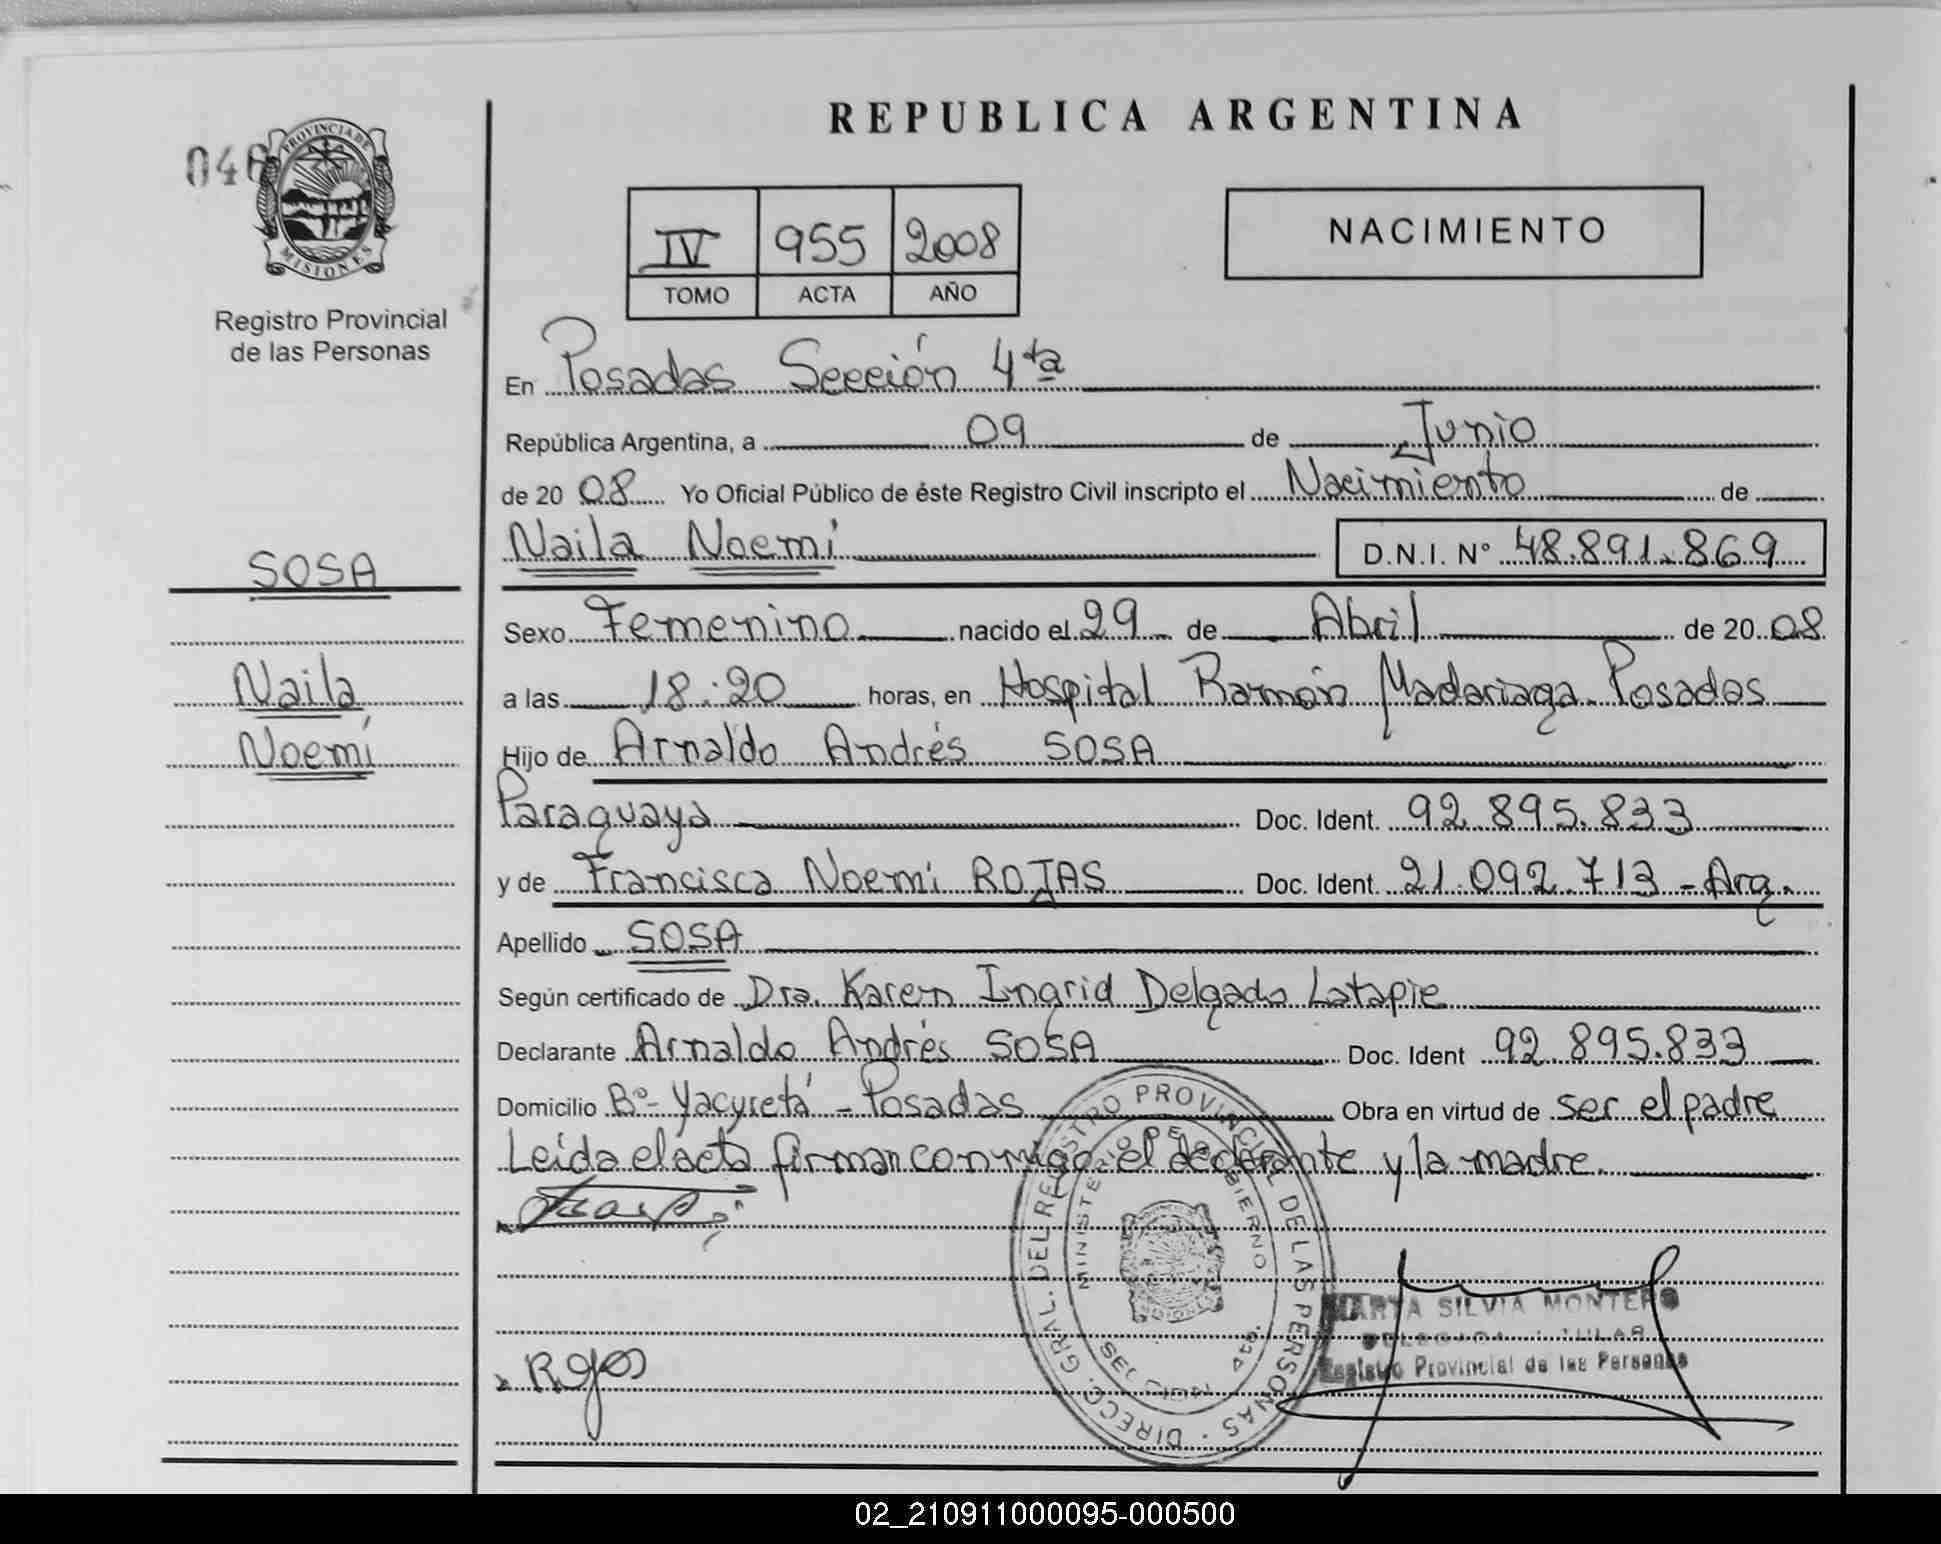 REPUBLICA ARGENTINA
046
PROVINCIA DE
MISIONES
Registro Provincial
de las Personas
IV 955 2008
TOMO ACTA AÑO
NACIMIENTO
En Posadas Sección 4ta
República Argentina, a 09 de Junio
de 20 08 Yo Oficial Público de éste Registro Civil inscripto el Nacimiento de
Naila Noemí D.N.I. N° 48.891.869
SOSA
Naila
Noemí
Sexo Femenino nacido el 29 de Abril de 20 08
a las 18:20 horas, en Hospital Ramón Madariaga Posadas
Hijo de Arnaldo Andrés SOSA
Paraguaya Doc. Ident. 92.895.833
y de Francisca Noemí ROJAS Doc. Ident. 21.092.713 - Arg.
Apellido SOSA
Según certificado de Dra. Karen Ingrid Delgado Latapie
Declarante Arnaldo Andrés SOSA Doc. Ident 92.895.833
Domicilio B°- Yacyretá - Posadas Obra en virtud de ser el padre
Leída el acta firman conmigo el declarante y la madre.
DIRECC. GRAL. DEL REGISTRO PROVINCIAL DE LAS PERSONAS
MINISTERIO DE GOBIERNO
SECCION 4ta.
MARTA SILVIA MONTERO
DELEGADA TITULAR
Registro Provincial de las Personas
Rojas
02_210911000095-000500